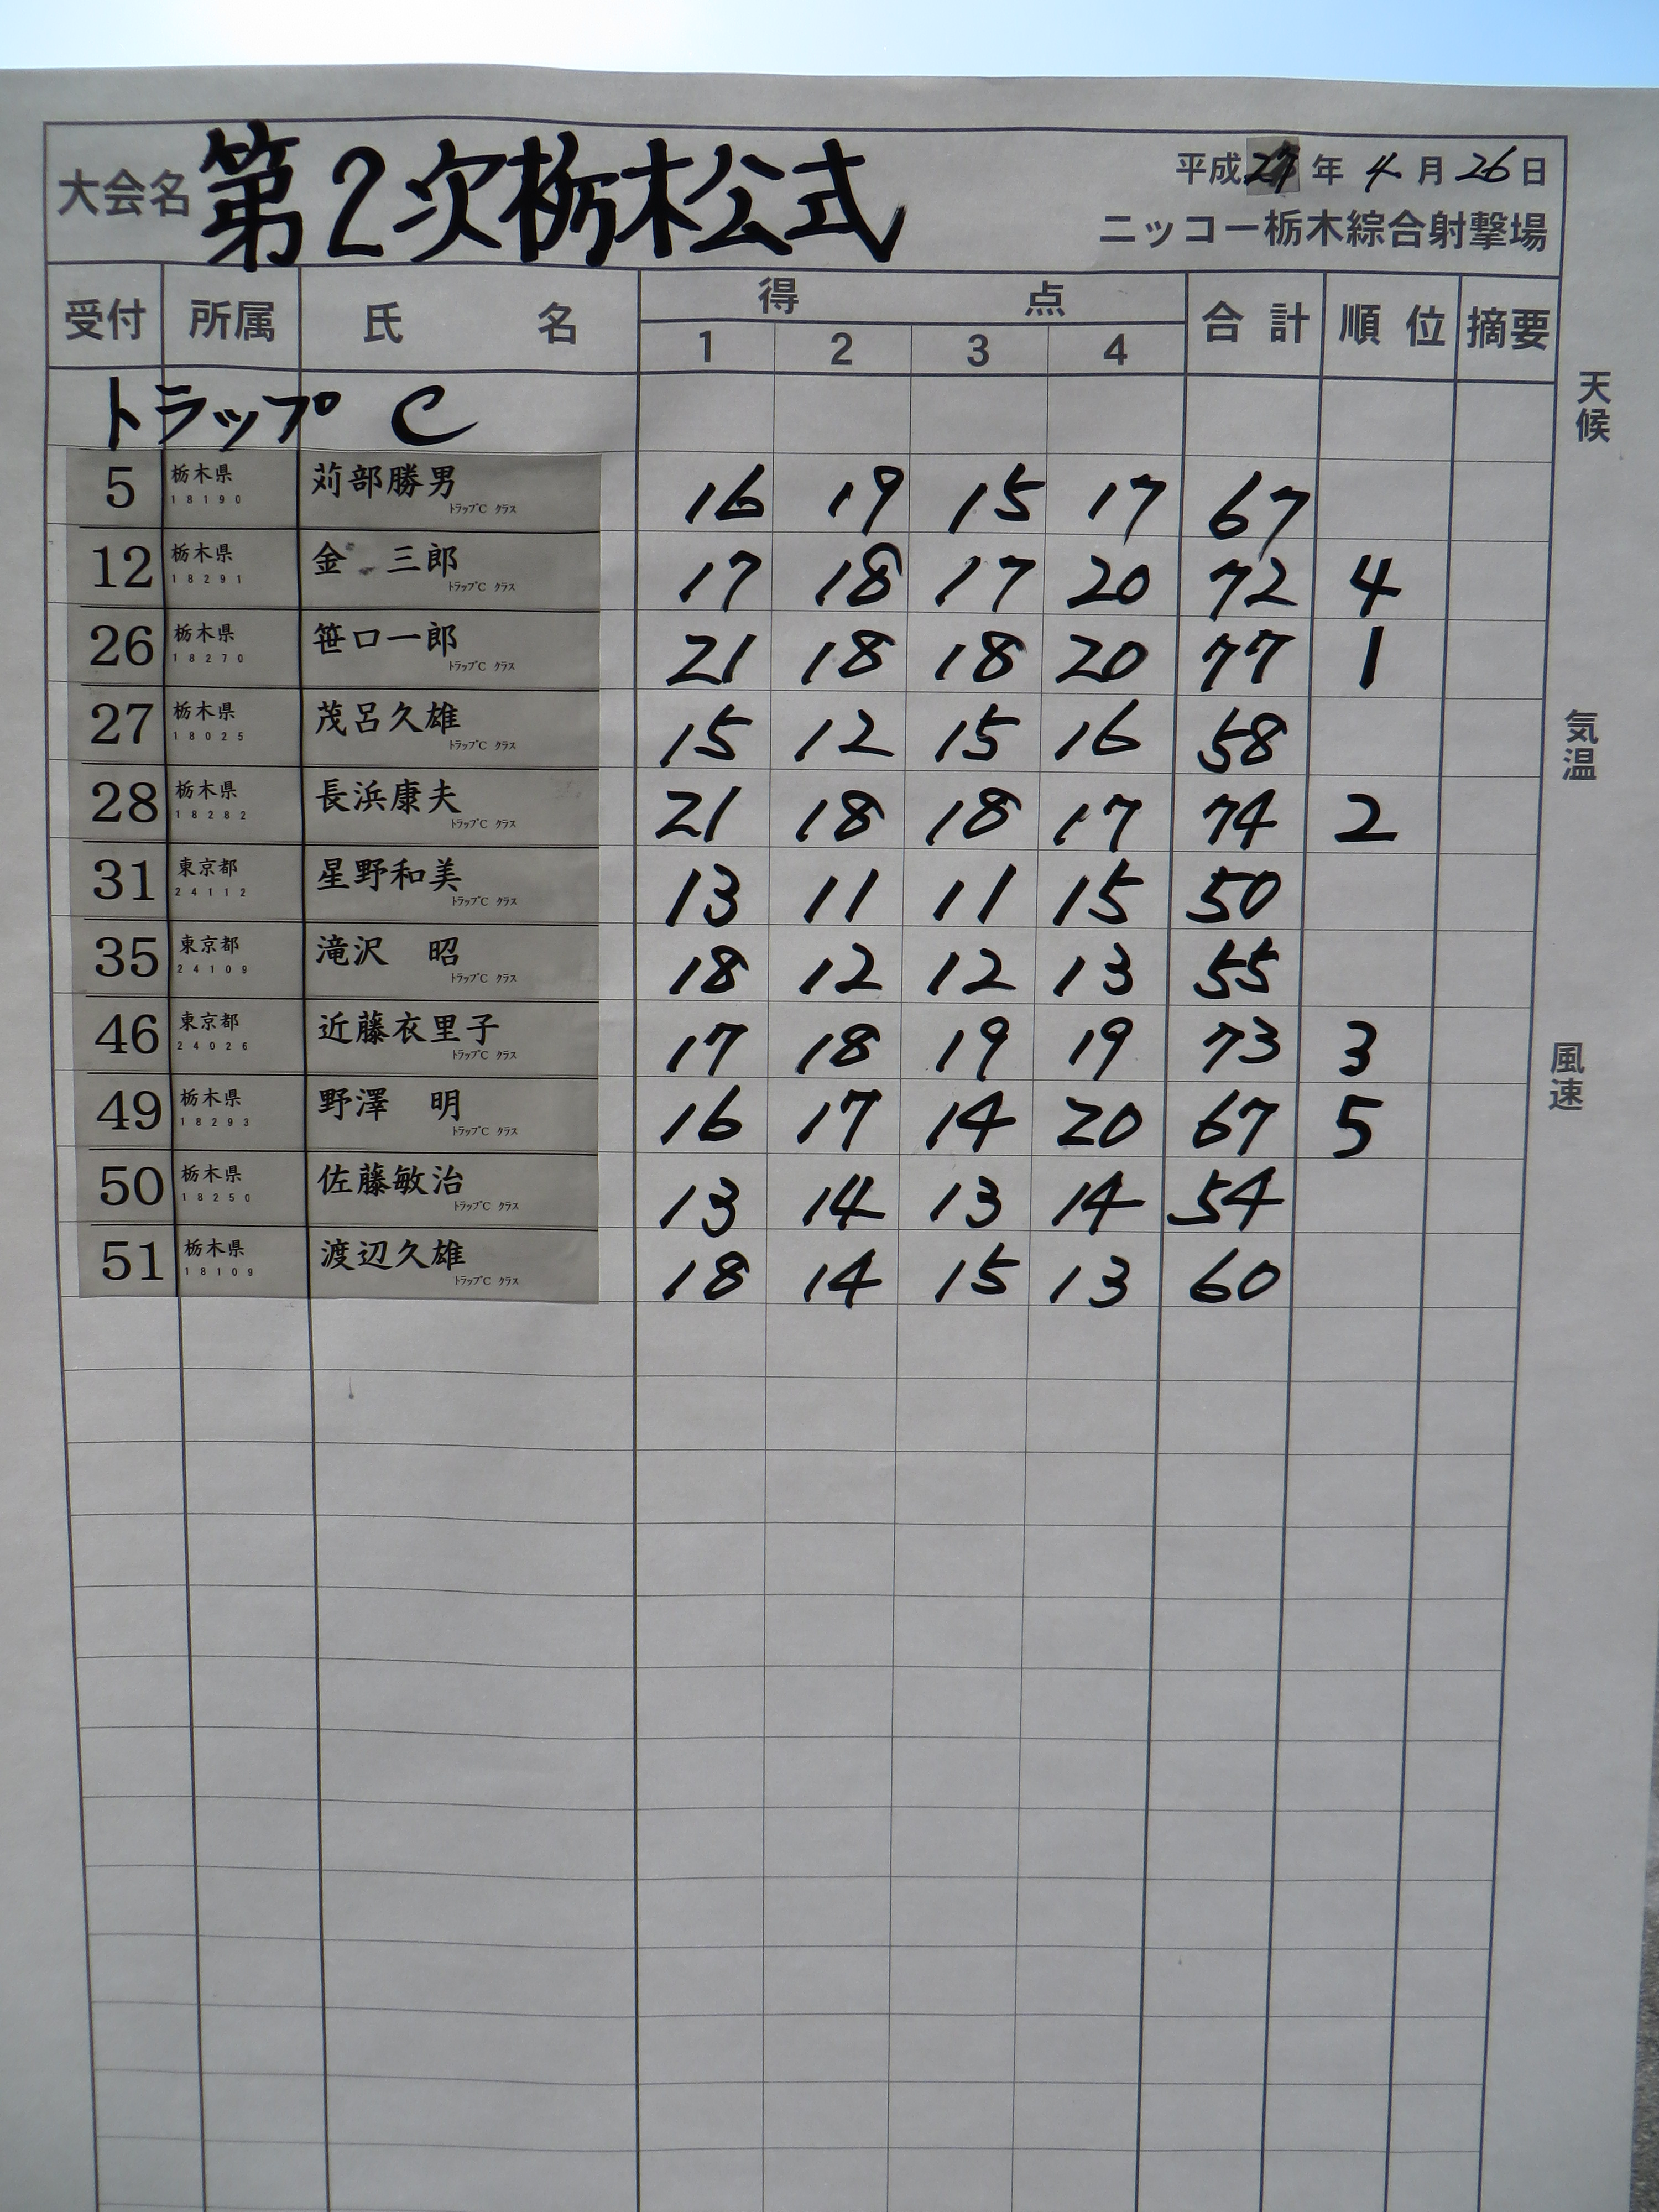 大会名 第2次栃木公式 平成27年4月26日
ニッコー栃木綜合射撃場
受付 所属 氏名 得点 合計 順位 摘要
1 2 3 4
トラップ C
5 栃木県 18190 苅部勝男 トラップC クラス 16 19 15 17 67
12 栃木県 18291 金 三郎 トラップC クラス 17 18 17 20 72 4
26 栃木県 18270 笹口一郎 トラップC クラス 21 18 18 20 77 1
27 栃木県 18025 茂呂久雄 トラップC クラス 15 12 15 16 58
28 栃木県 18282 長浜康夫 トラップC クラス 21 18 18 17 74 2
31 東京都 24112 星野和美 トラップC クラス 13 11 11 15 50
35 東京都 24109 滝沢 昭 トラップC クラス 18 12 12 13 55
46 東京都 24026 近藤衣里子 トラップC クラス 17 18 19 19 73 3
49 栃木県 18293 野澤 明 トラップC クラス 16 17 14 20 67 5
50 栃木県 18250 佐藤敏治 トラップC クラス 13 14 13 14 54
51 栃木県 18109 渡辺久雄 トラップC クラス 18 14 15 13 60
天候
気温
風速